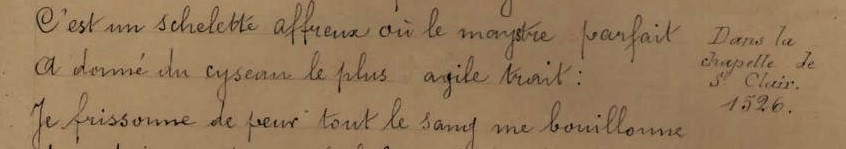 C'est un schelette affreux où le maystre parfait
A donné du cyseau le plus agile trait :
Je frissonne de peur tout le sang me bouillonne
Dans la
chapelle de
St Clair.
1526.